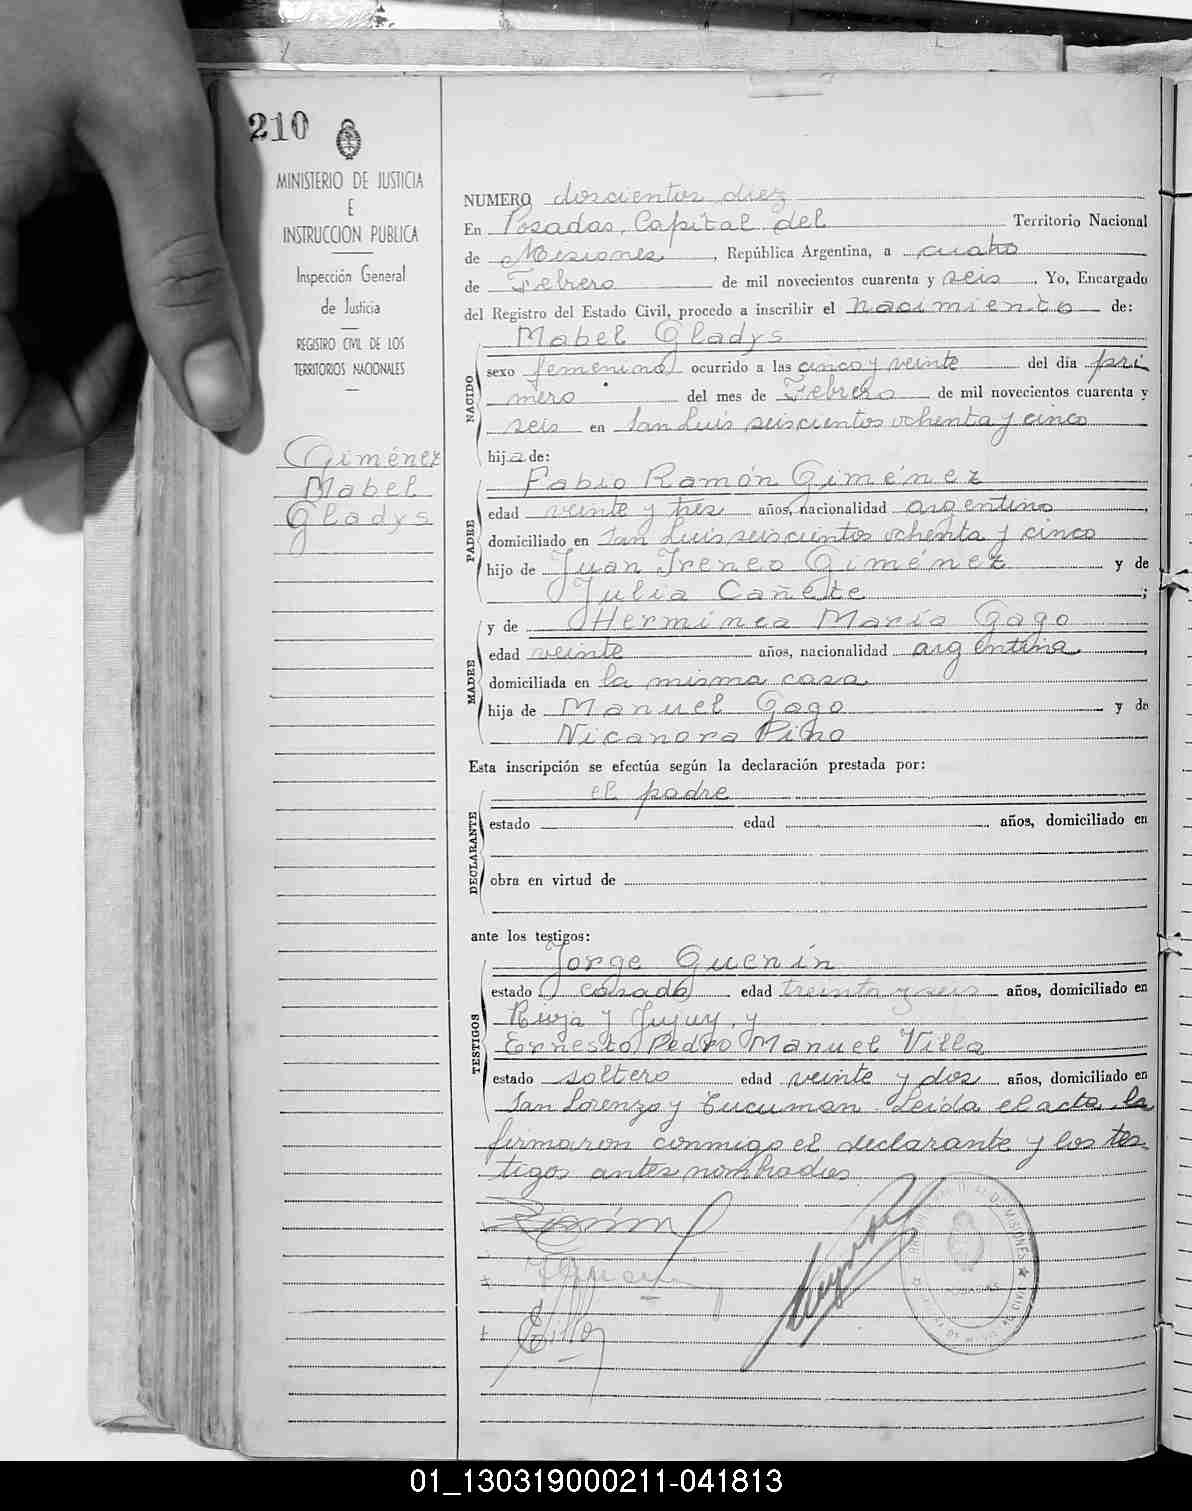 210
MINISTERIO DE JUSTICIA
E
INSTRUCCION PUBLICA
Inspección General
de Justicia
REGISTRO CIVIL DE LOS
TERRITORIOS NACIONALES
Giménez
Mabel
Gladys
NUMERO doscientos diez
En Posadas, Capital del Territorio Nacional
de Misiones, República Argentina, a cuatro
de Febrero de mil novecientos cuarenta y seis. Yo, Encargado
del Registro del Estado Civil, procedo a inscribir el nacimiento de:
NACIDO
Mabel Gladys
sexo femenino ocurrido a las cinco y veinte del día pri
mero del mes de Febrero de mil novecientos cuarenta y
seis en San Luis seiscientos ochenta y cinco
hija de:
PADRE
Fabio Ramón Giménez
edad veinte y tres años, nacionalidad argentino,
domiciliado en San Luis seiscientos ochenta y cinco
hijo de Juan Ireneo Giménez y de
Julia Cañete;
MADRE
y de Herminea María Gago
edad veinte años, nacionalidad argentina,
domiciliada en la misma casa
hija de Manuel Gago y de
Nicanora Pino
Esta inscripción se efectúa según la declaración prestada por:
DECLARANTE
el padre
estado edad años, domiciliado en
obra en virtud de
ante los testigos:
TESTIGOS
Jorge Guenin
estado casado edad treinta y seis años, domiciliado en
Rioja y Jujuy, y
Ernesto Pedro Manuel Villa
estado soltero edad veinte y dos años, domiciliado en
San Lorenzo y Tucuman. Leida el acta, la
firmaron conmigo el declarante y los tes-
tigos antes nombrados.
DE MISIONES
01_130319000211-041813